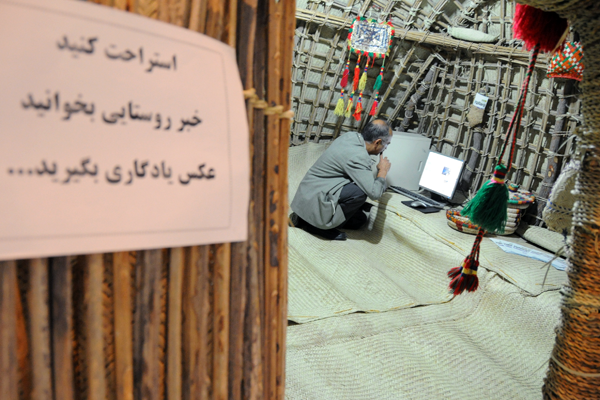 استراحت کنید
خبر روستایی بخوانید
عکس یادگاری بگیرید...